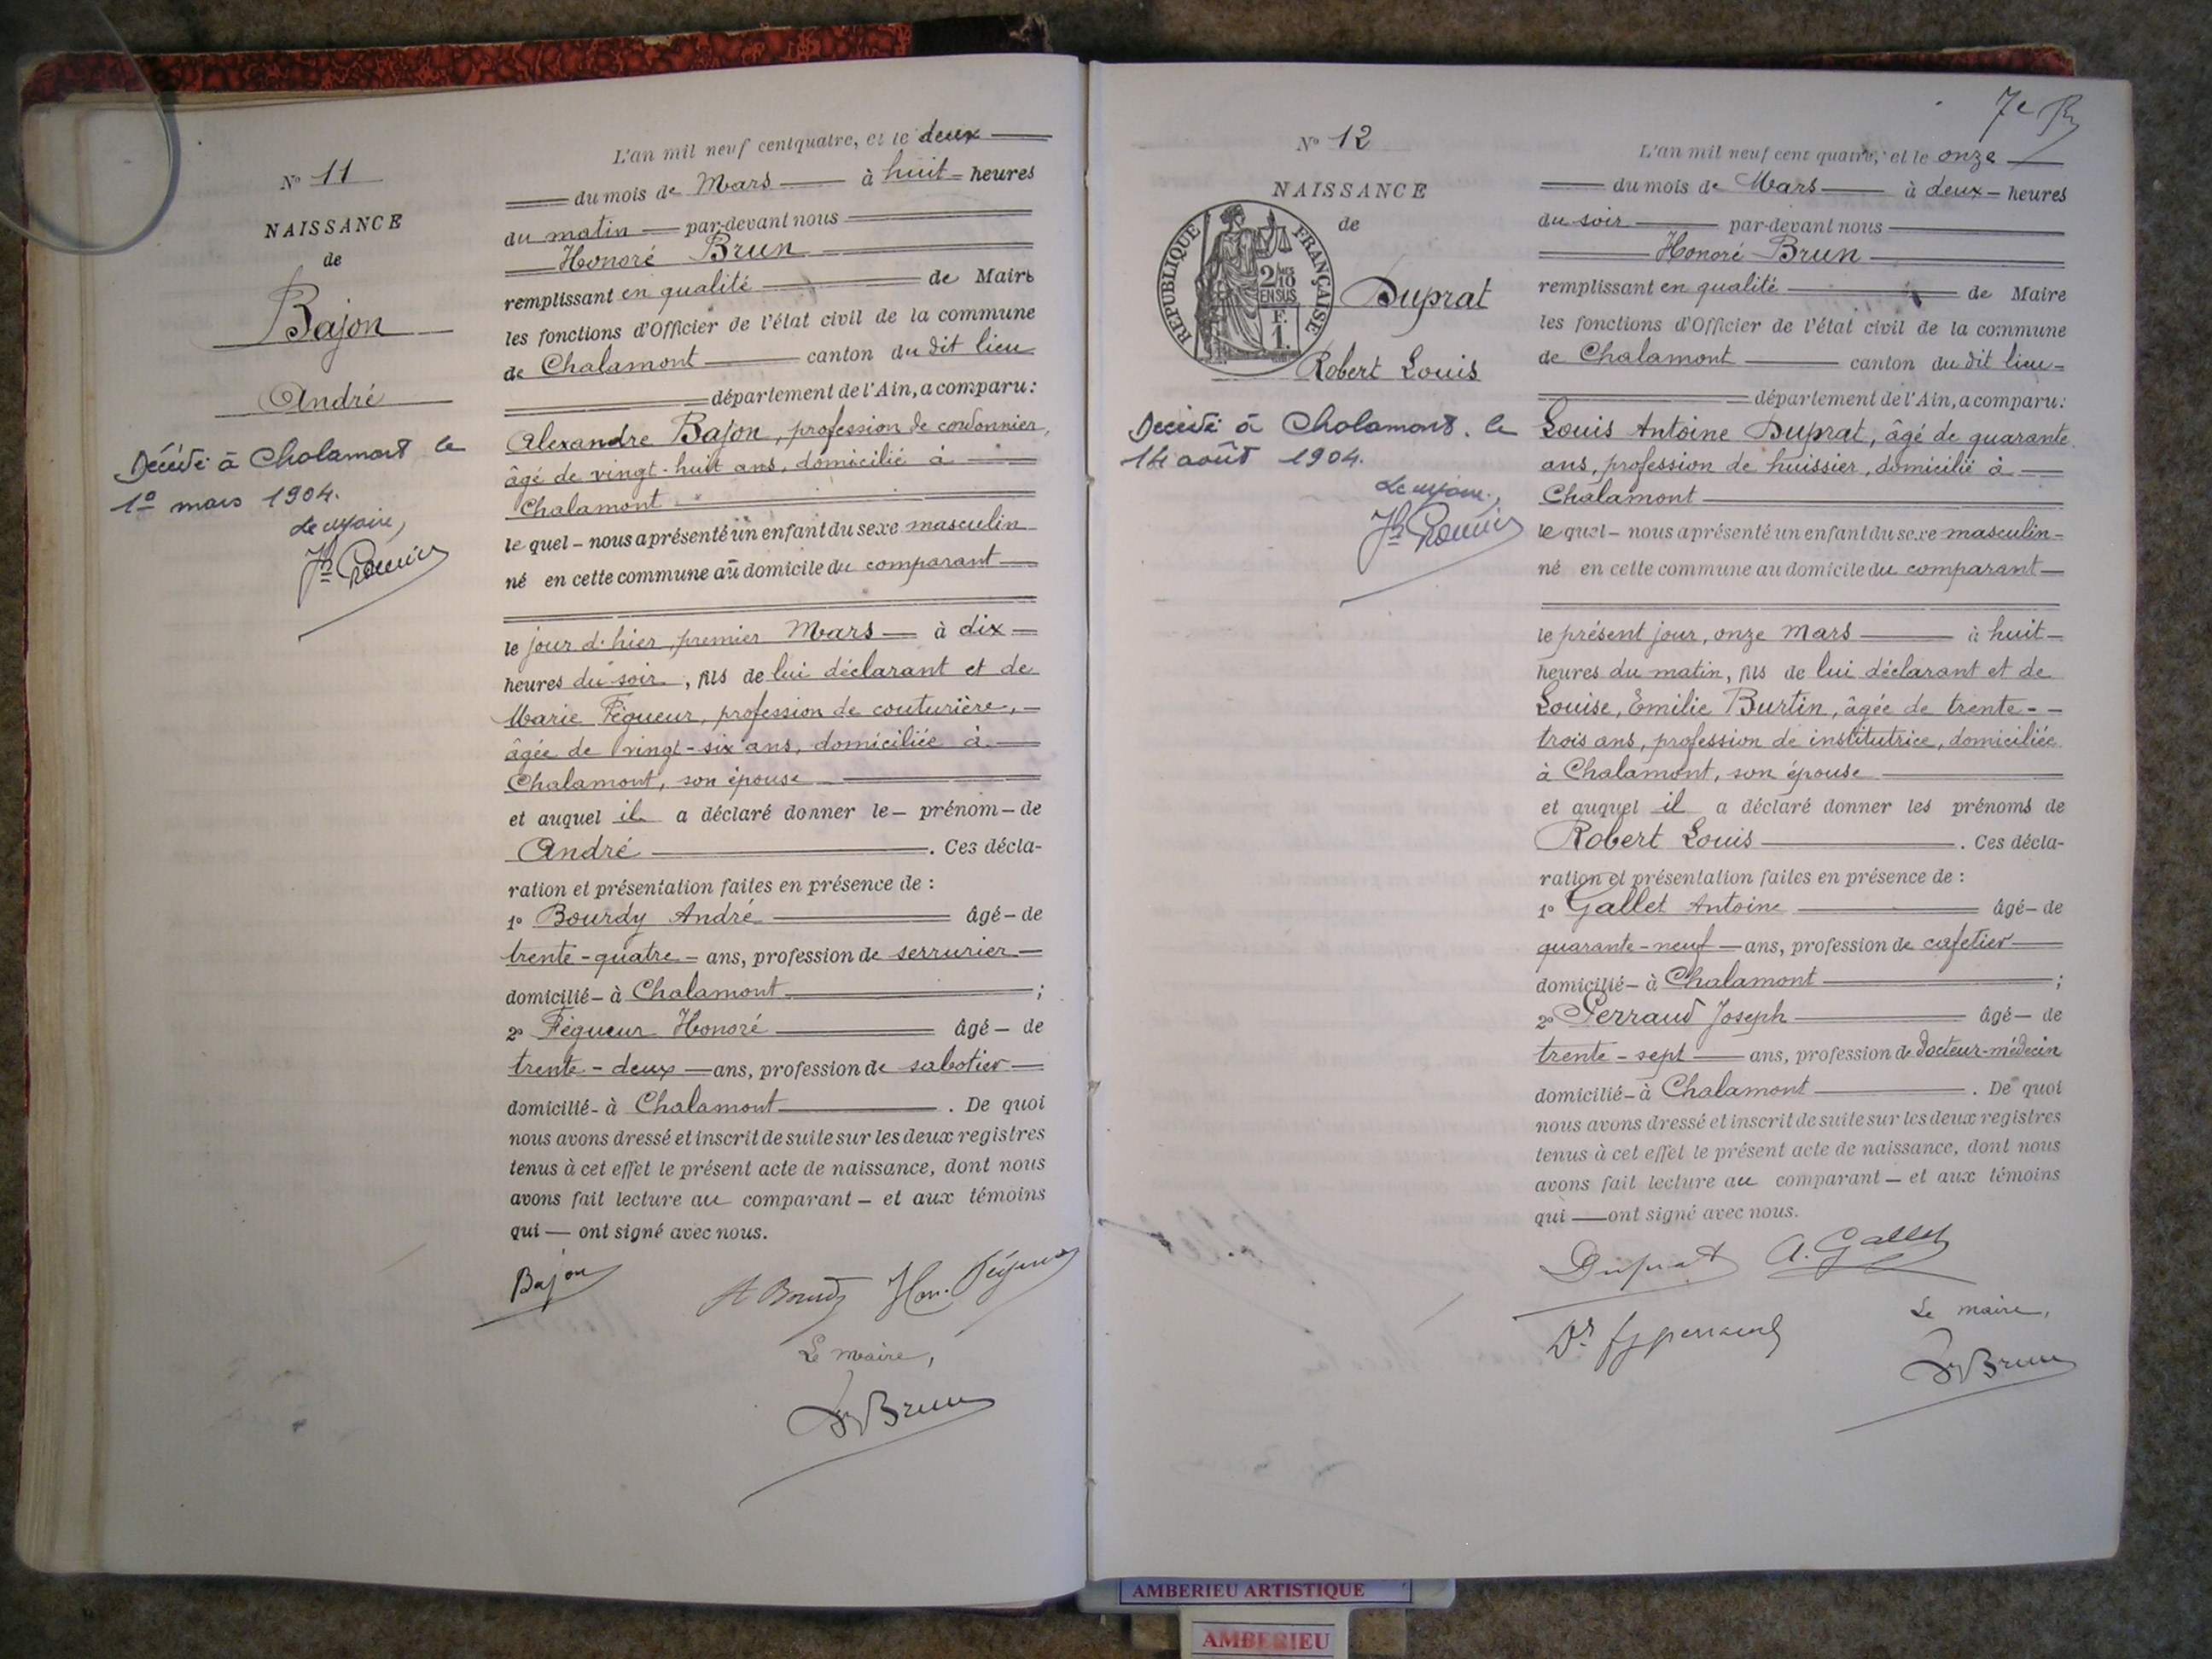 N° 11
NAISSANCE
de
Bajon
André
Décédé à Chalamont le
1er mars 1904.
Le Maire,
L'an mil neuf cent quatre, et le deux
du mois de Mars à huit heures
du matin par-devant nous
Honoré Brun
remplissant en qualité de Maire
les fonctions d'Officier de l'état civil de la commune
de Chalamont canton du dit lieu
département de l'Ain, a comparu:
Alexandre Bajon, profession de cordonnier,
âgé de vingt-huit ans, domicilié à
Chalamont
lequel nous a présenté un enfant du sexe masculin
né en cette commune au domicile du comparant
le jour d'hier, premier Mars à dix
heures du soir, fils de lui déclarant et de
Marie Fégueur, profession de couturière,
âgée de vingt-six ans, domiciliée à
Chalamont, son épouse
et auquel il a déclaré donner le prénom de
André. Ces décla-
ration et présentation faites en présence de :
1° Bourdy André âgé de
trente-quatre ans, profession de serrurier
domicilié à Chalamont ;
2° Fégueur Honoré âgé de
trente-deux ans, profession de sabotier
domicilié à Chalamont. De quoi
nous avons dressé et inscrit de suite sur les deux registres
tenus à cet effet le présent acte de naissance, dont nous
avons fait lecture au comparant et aux témoins
qui ont signé avec nous.
Bajon A Bourdy Hon. Fégueur
Le maire,
Brun
7e
N° 12
NAISSANCE
de
REPUBLIQUE FRANÇAISE
2/10
EN SUS
F.
1.
Duprat
Robert Louis
Décédé à Chalamont. le
14 août 1904.
Le Maire,
L'an mil neuf cent quatre, et le onze
du mois de Mars à deux heures
du soir par-devant nous
Honoré Brun
remplissant en qualité de Maire
les fonctions d'Officier de l'état civil de la commune
de Chalamont canton du dit lieu
département de l'Ain, a comparu:
Louis Antoine Duprat, âgé de quarante
ans, profession de huissier, domicilié à
Chalamont
lequel nous a présenté un enfant du sexe masculin
né en cette commune au domicile du comparant
le présent jour, onze mars à huit
heures du matin, fils de lui déclarant et de
Louise, Emilie Burtin, âgée de trente-
trois ans, profession de institutrice, domiciliée
à Chalamont, son épouse
et auquel il a déclaré donner les prénoms de
Robert Louis. Ces décla-
ration et présentation faites en présence de :
1° Gallet Antoine âgé de
quarante-neuf ans, profession de cafetier
domicilié à Chalamont ;
2° Perraud Joseph âgé de
trente-sept ans, profession de docteur-médecin
domicilié à Chalamont. De quoi
nous avons dressé et inscrit de suite sur les deux registres
tenus à cet effet le présent acte de naissance, dont nous
avons fait lecture au comparant et aux témoins
qui ont signé avec nous.
Duprat A. Gallet
Dr Perraud
Le maire,
Brun
AMBERIEU ARTISTIQUE
AMBERIEU